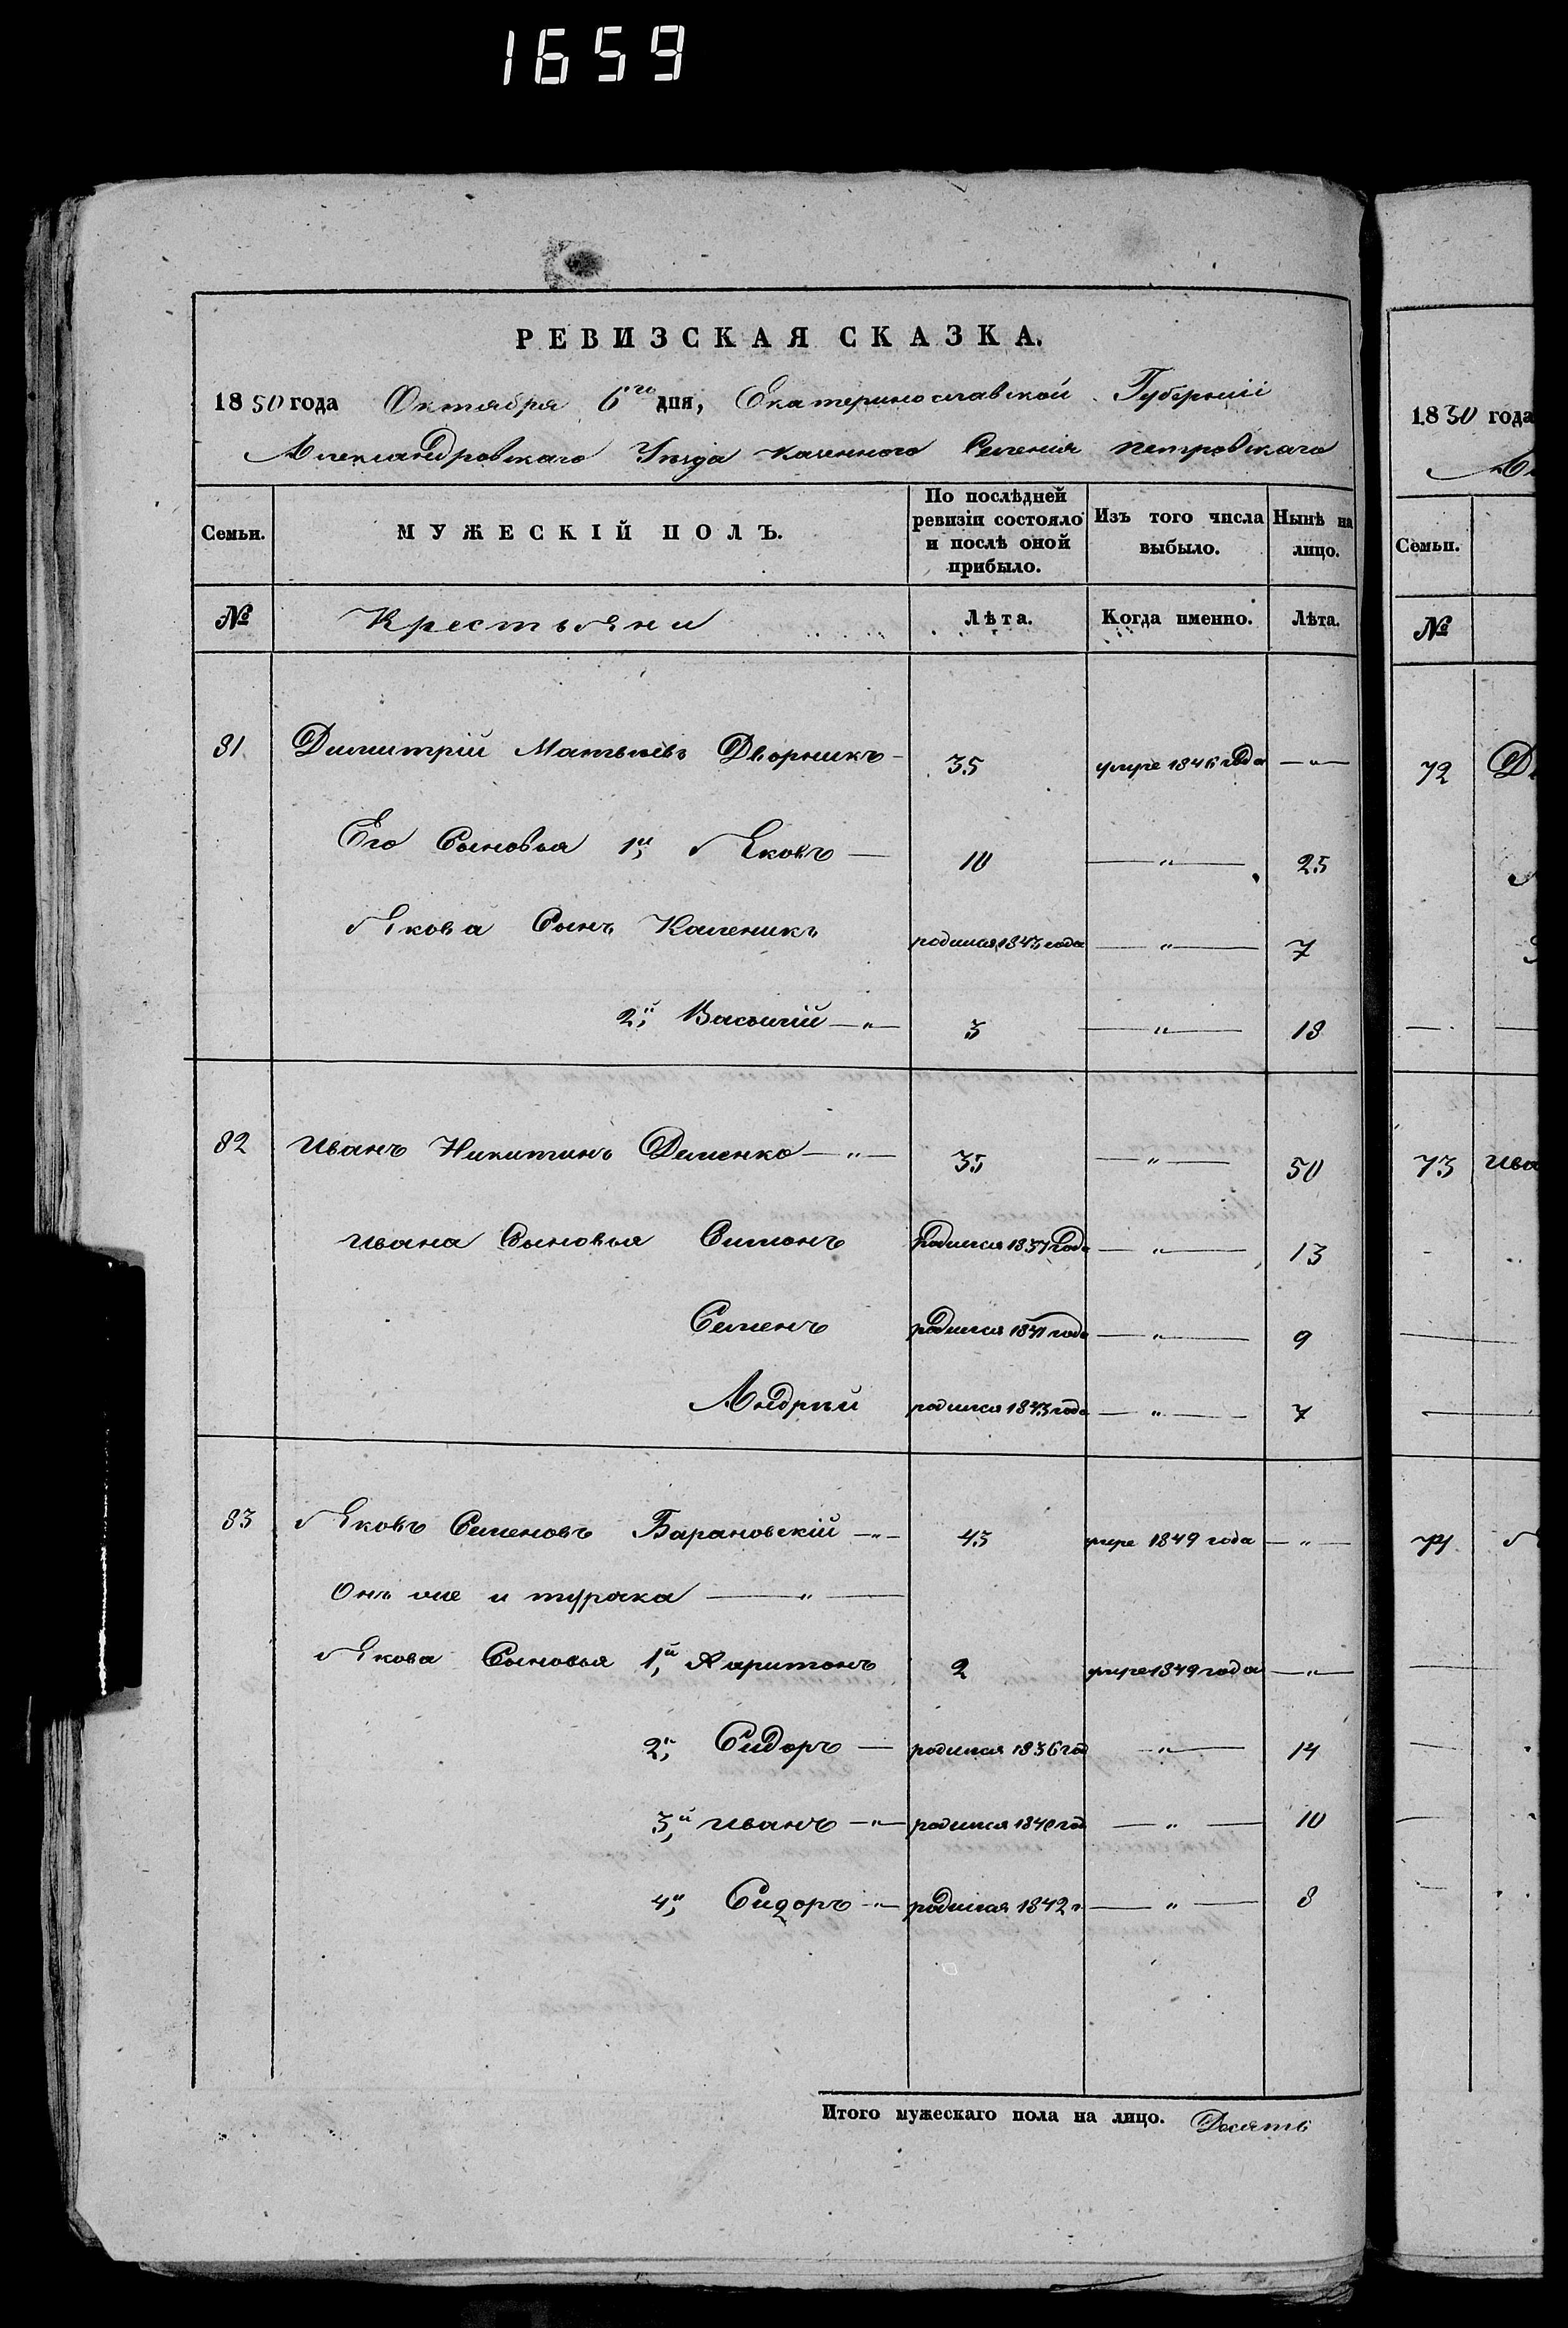 1659
РЕВИЗСКАЯ СКАЗКА.
1850 года Октября 6го дня, Екатеринославской Губерніи
Александровскаго Уѣзда казенного Селенія Петровскаго
Семьи. МУЖЕСКІЙ ПОЛЪ. По послѣдней ревизіи состояло и послѣ оной прибыло. Изъ того числа выбыло. Нынѣ на лицо.
№ Крестьяни Лѣта. Когда именно. Лѣта.
81 Димитрій Матвѣевъ Дворникъ 35 умре 1846 года — " —
Его Сыновья 1й Яковъ — 10 — " — 25
Якова Сынъ Каленикъ родился 1843 года — " — 7
2й Василій — " — 3 — " — 18
82 Иванъ Никитинъ Деменко — " — 35 — " — 50
Ивана Сыновья Симонъ родился 1837 года — " — 13
Семенъ родился 1841 года — " — 9
Андрѣй родился 1843 года — " — 7
83 Яковъ Семеновъ Барановскій — " — 43 умре 1849 года — " —
Онъ же и турака — " —
Якова Сыновья 1й Харитонъ 2 умре 1849 года — " —
2й Сидоръ — родился 1836 год — " — 14
3й Иванъ — " — родился 1840 год — " — 10
4й Сидоръ — " — родился 1842 г — " — 8
Итого мужескаго пола на лицо. Десять
1850 года
Семьи.
№
72
73 Ива
74